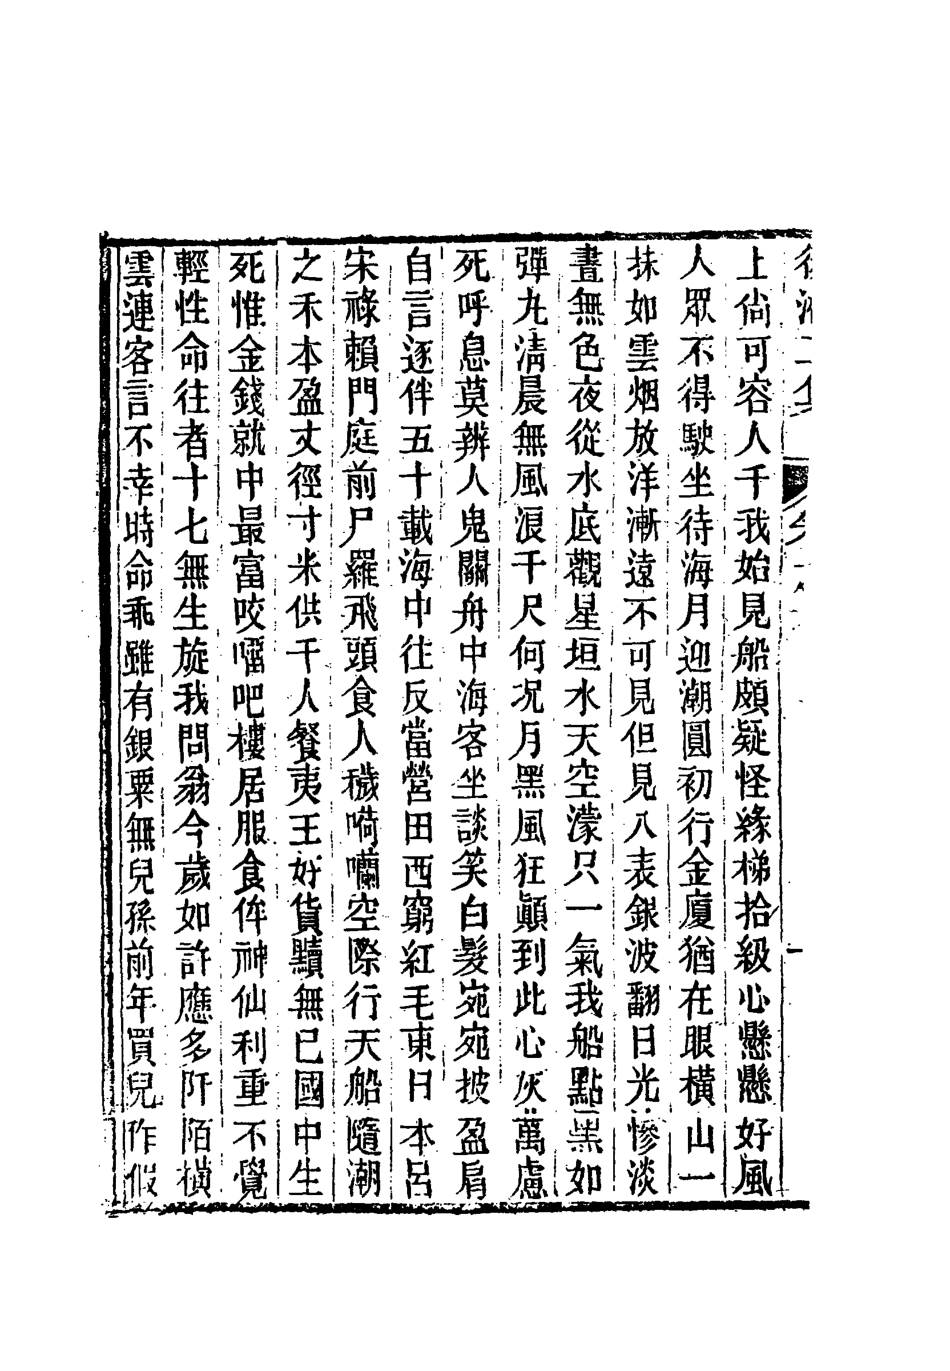 上尙可容人千我始見船頗疑怪緣梯拾級心懸懸好風
人眾不得駛坐待海月迎潮圓初行金廈猶在眼橫山一
抹如雲烟放洋漸遠不可見但見八表銀波翻日光慘淡
晝無色夜從水底觀星垣水天空濛只一氣我船點黑如
彈九淸晨無風浪千尺何况月黑風狂顚到此心灰萬慮
死呼息莫辨人鬼關舟中海客坐談笑白髮宛宛披盈肩
自言逐伴五十載海中往反當營田西窮紅毛東日本呂
宋祿賴門庭前尸羅飛頭食人穢噶囒空際行天船隨潮
之禾本盈丈徑寸米供千人餐夷王好貨黷無已國中生
死惟金錢就中最富咬𠺕吧樓居服食侔神仙利重不覺
輕性命往者十七無生旋我問翁今歲如許應多阡陌橫
雲連客言不幸時命乖雖有銀粟無兒孫前年買兒作假